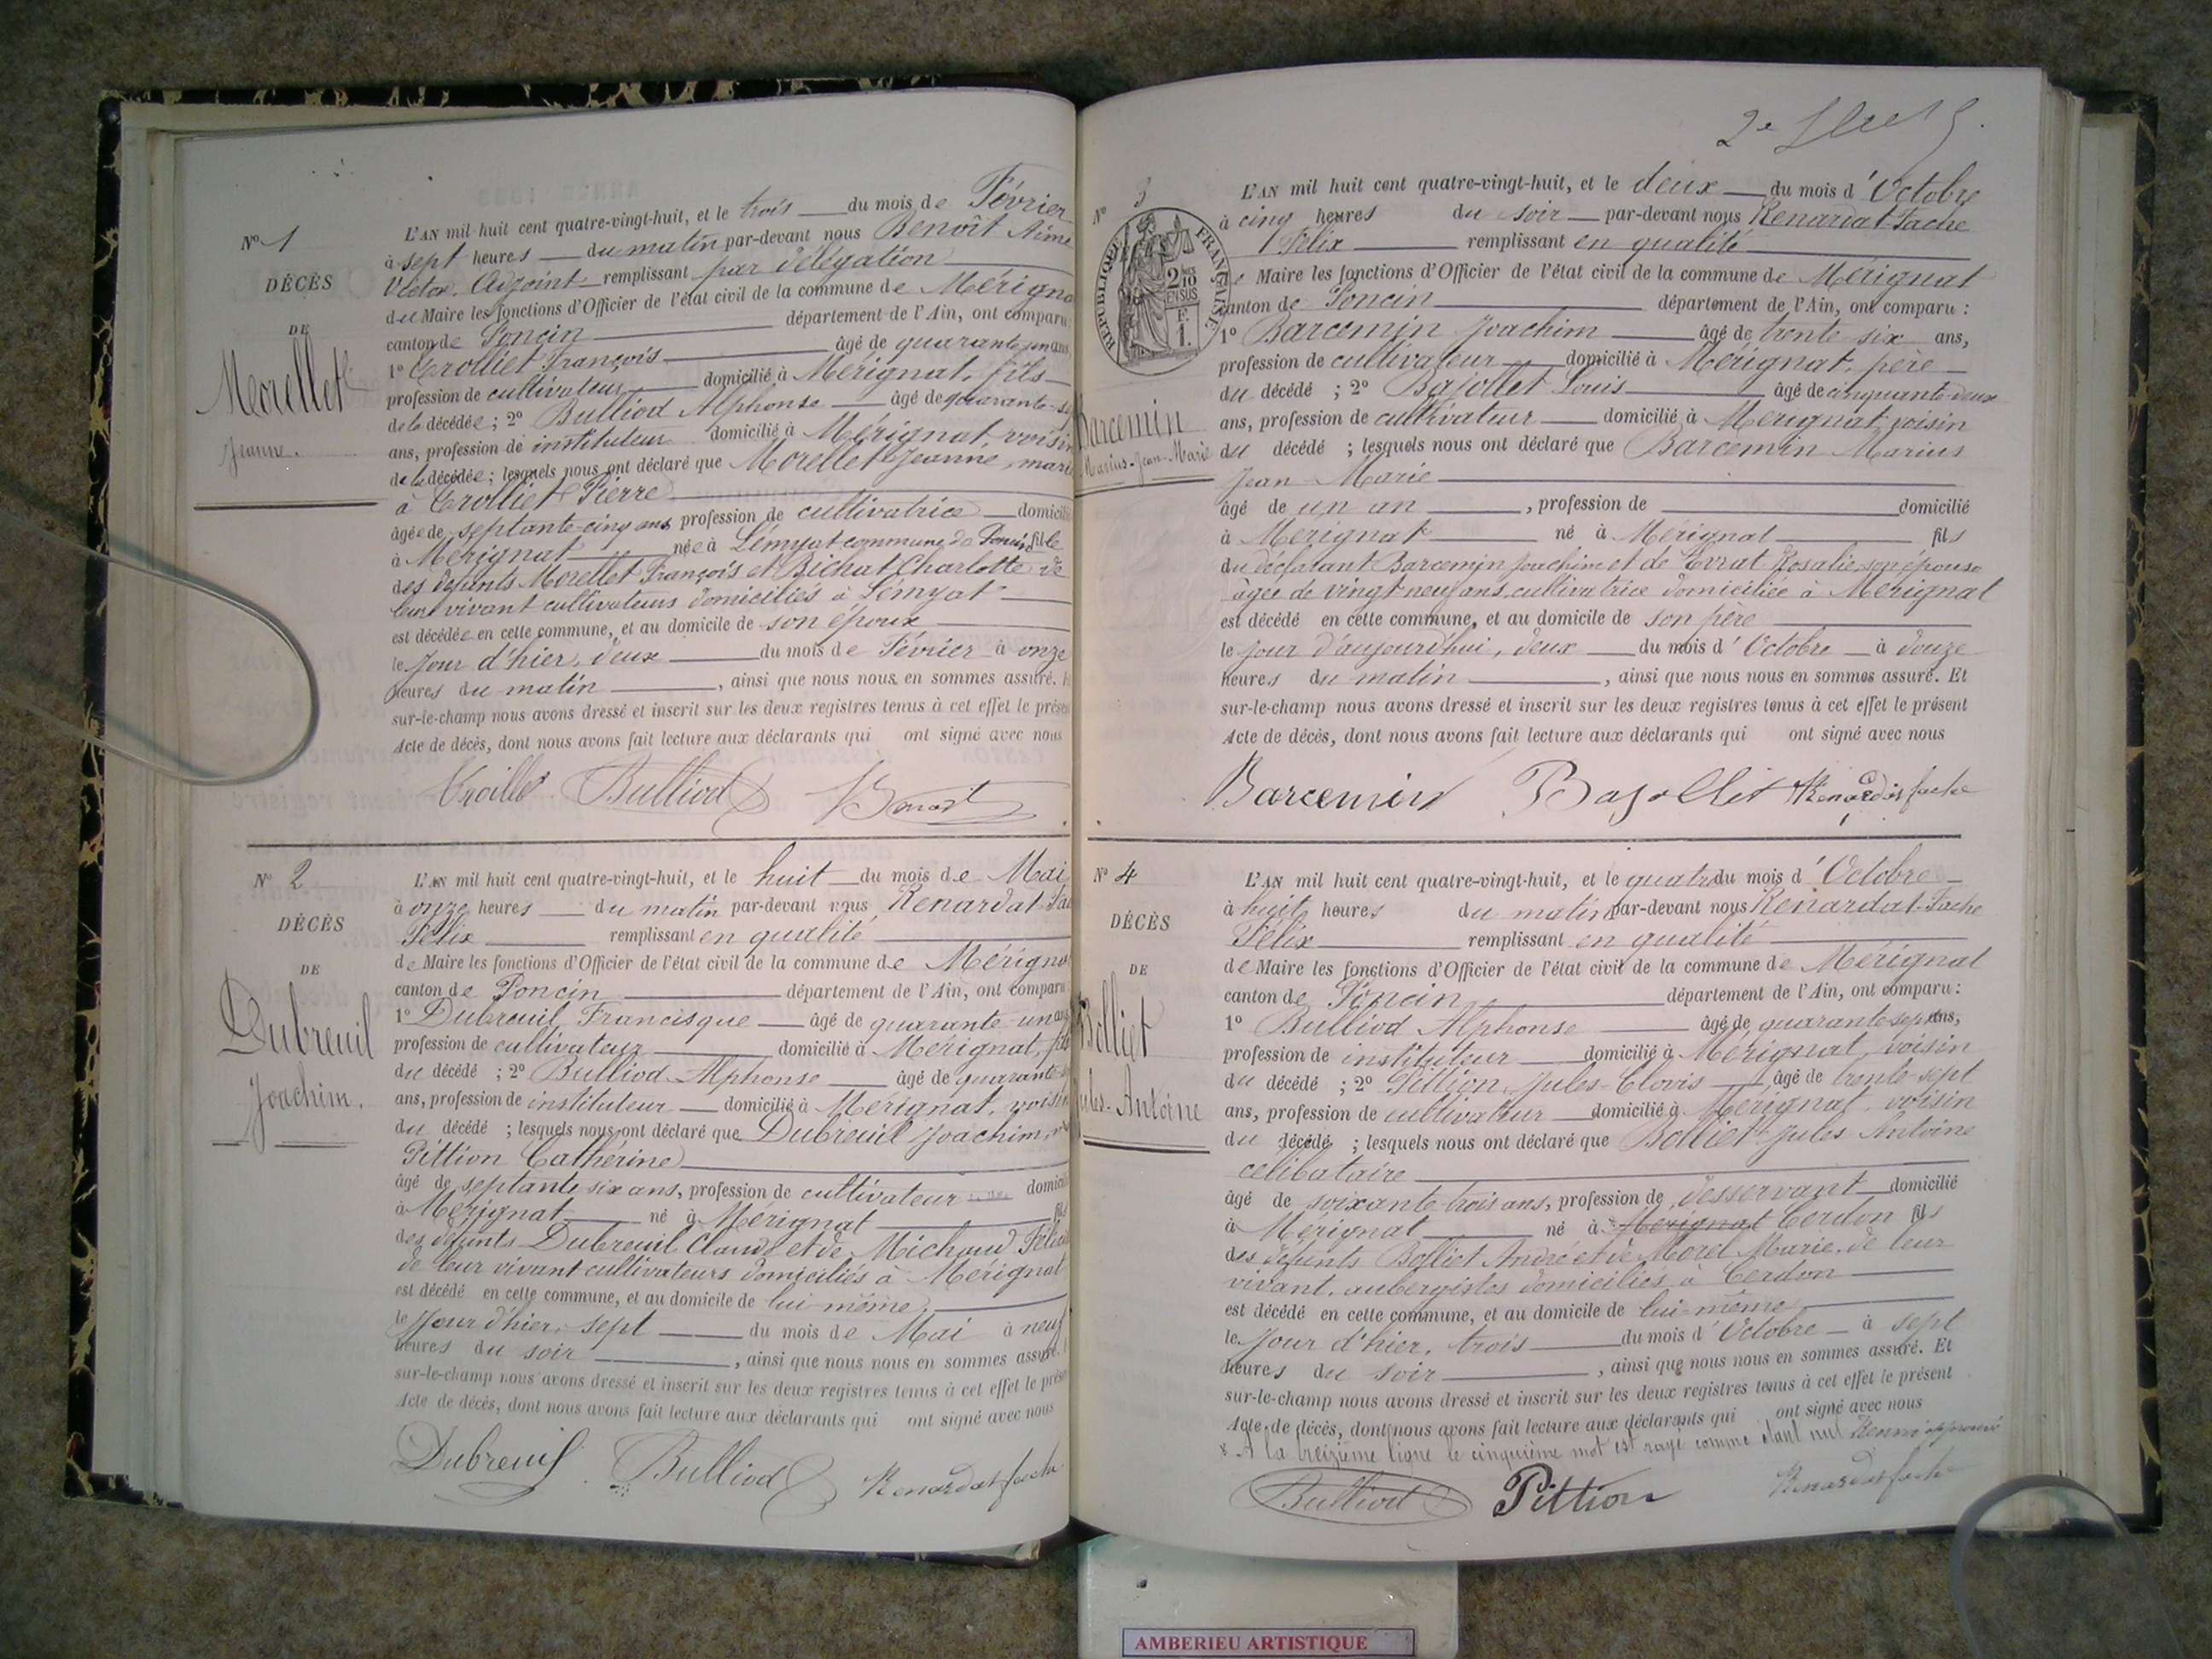 N° 1
DÉCÈS
DE
Morellet
Jeanne.
L'AN mil huit cent quatre-vingt-huit, et le trois du mois de Février
à sept heures du matin par-devant nous Benoît Aimé
Victor. Adjoint remplissant par délégation
du Maire les fonctions d'Officier de l'état civil de la commune de Mérigna
canton de Poncin département de l'Ain, ont comparu
1° Crolliet François âgé de quarante-un ans,
profession de cultivateur domicilié à Mérignat, fils
de la décédée ; 2° Bulliod Alphonse âgé de quarante-s
ans, profession de instituteur domicilié à Mérignat, voisin
de la décédée ; lesquels nous ont déclaré que Morellet Jeanne, mari
à Crolliet Pierre
âgée de septante-cinq ans profession de cultivatrice domicili
à Mérignat née à Lémyat commune de Poncin fille
des défunts Morellet François et Bichat Charlotte de
leur vivant cultivateurs domiciliés à Lémyat
est décédée en cette commune, et au domicile de son époux
le Jour d'hier, deux du mois de Février à onze
heures du matin , ainsi que nous nous en sommes assuré.
sur-le-champ nous avons dressé et inscrit sur les deux registres tenus à cet effet le prése
Acte de décès, dont nous avons fait lecture aux déclarants qui ont signé avec nous
Bulliod
N° 2
DÉCÈS
DE
Dubreuil
Joachim.
L'AN mil huit cent quatre-vingt-huit, et le huit du mois de Mai
à onze heures du matin par-devant nous Renardat-Fac
Félix remplissant en qualité
de Maire les fonctions d'Officier de l'état civil de la commune de Mérigna
canton de Poncin département de l'Ain, ont comparu
1° Dubreuil Francisque âgé de quarante-un ans
profession de cultivateur domicilié à Mérignat, fils
du décédé ; 2° Bulliod Alphonse âgé de quarante-
ans, profession de instituteur domicilié à Mérignat, voisin
du décédé ; lesquels nous ont déclaré que Dubreuil Joachim,
Pittion Catherine
âgé de septante six ans, profession de cultivateur domici
à Mérignat né à Mérignat fils
des défunts Dubreuil Claude et de Michaud
de leur vivant cultivateurs domiciliés à Mérignat
est décédé en cette commune, et au domicile de lui-même,
le Jour d'hier, sept du mois de Mai à neuf
heures du soir , ainsi que nous nous en sommes assuré.
sur-le-champ nous avons dressé et inscrit sur les deux registres tenus à cet effet le prése
Acte de décès, dont nous avons fait lecture aux déclarants qui ont signé avec nous
Dubreuil Bulliod Renardat fache
2e
N° 3
RÉPUBLIQUE FRANÇAISE
2/10 EN SUS
F.
1.
Barcemin
Marius-Jean-Marie
L'AN mil huit cent quatre-vingt-huit, et le deux du mois d'Octobre
à cinq heures du soir par-devant nous Renardat-Fache
Félix remplissant en qualité
de Maire les fonctions d'Officier de l'état civil de la commune de Mérignat
canton de Poncin département de l'Ain, ont comparu :
1° Barcemin Joachim âgé de trente six ans,
profession de cultivateur domicilié à Mérignat, père
du décédé ; 2° Bajollet Louis âgé de cinquante-deux
ans, profession de cultivateur domicilié à Mérignat, voisin
du décédé ; lesquels nous ont déclaré que Barcemin Marius
Jean Marie
âgé de un an , profession de domicilié
à Mérignat né à Mérignat fils
du déclarant Barcemin Joachim et de Errat Rosalie son épouse
âgée de vingt-neuf ans, cultivatrice domiciliée à Mérignat
est décédé en cette commune, et au domicile de son père
le Jour d'aujourd'hui, deux du mois d'Octobre à douze
heures du matin , ainsi que nous nous en sommes assuré. Et
sur-le-champ nous avons dressé et inscrit sur les deux registres tenus à cet effet le présent
Acte de décès, dont nous avons fait lecture aux déclarants qui ont signé avec nous
Barcemin Bajollet Renardat fache
N° 4
DÉCÈS
DE
Bolliet
Jules-Antoine
L'AN mil huit cent quatre-vingt-huit, et le quatre du mois d'Octobre
à huit heures du matin par-devant nous Renardat-Fache
Félix remplissant en qualité
de Maire les fonctions d'Officier de l'état civil de la commune de Mérignat
canton de Poncin département de l'Ain, ont comparu :
1° Bulliod Alphonse âgé de quarante-sept ans,
profession de instituteur domicilié à Mérignat, voisin
du décédé ; 2° Pittion Jules-Clovis âgé de trente-sept
ans, profession de cultivateur domicilié à Mérignat, voisin
du décédé ; lesquels nous ont déclaré que Bolliet Jules Antoine
célibataire
âgé de soixante-trois ans, profession de desservant domicilié
à Mérignat né à * Mérignat Cerdon fils
des défunts Bolliet André et de Morel Marie, de leur
vivant, aubergistes domiciliés à Cerdon
est décédé en cette commune, et au domicile de lui-même
le Jour d'hier, trois du mois d'Octobre à sept
heures du soir , ainsi que nous nous en sommes assuré. Et
sur-le-champ nous avons dressé et inscrit sur les deux registres tenus à cet effet le présent
Acte de décès, dont nous avons fait lecture aux déclarants qui ont signé avec nous
* A la treizième ligne le cinquième mot est rayé comme étant nul
Bulliod Pittion Renardat fache
AMBERIEU ARTISTIQUE